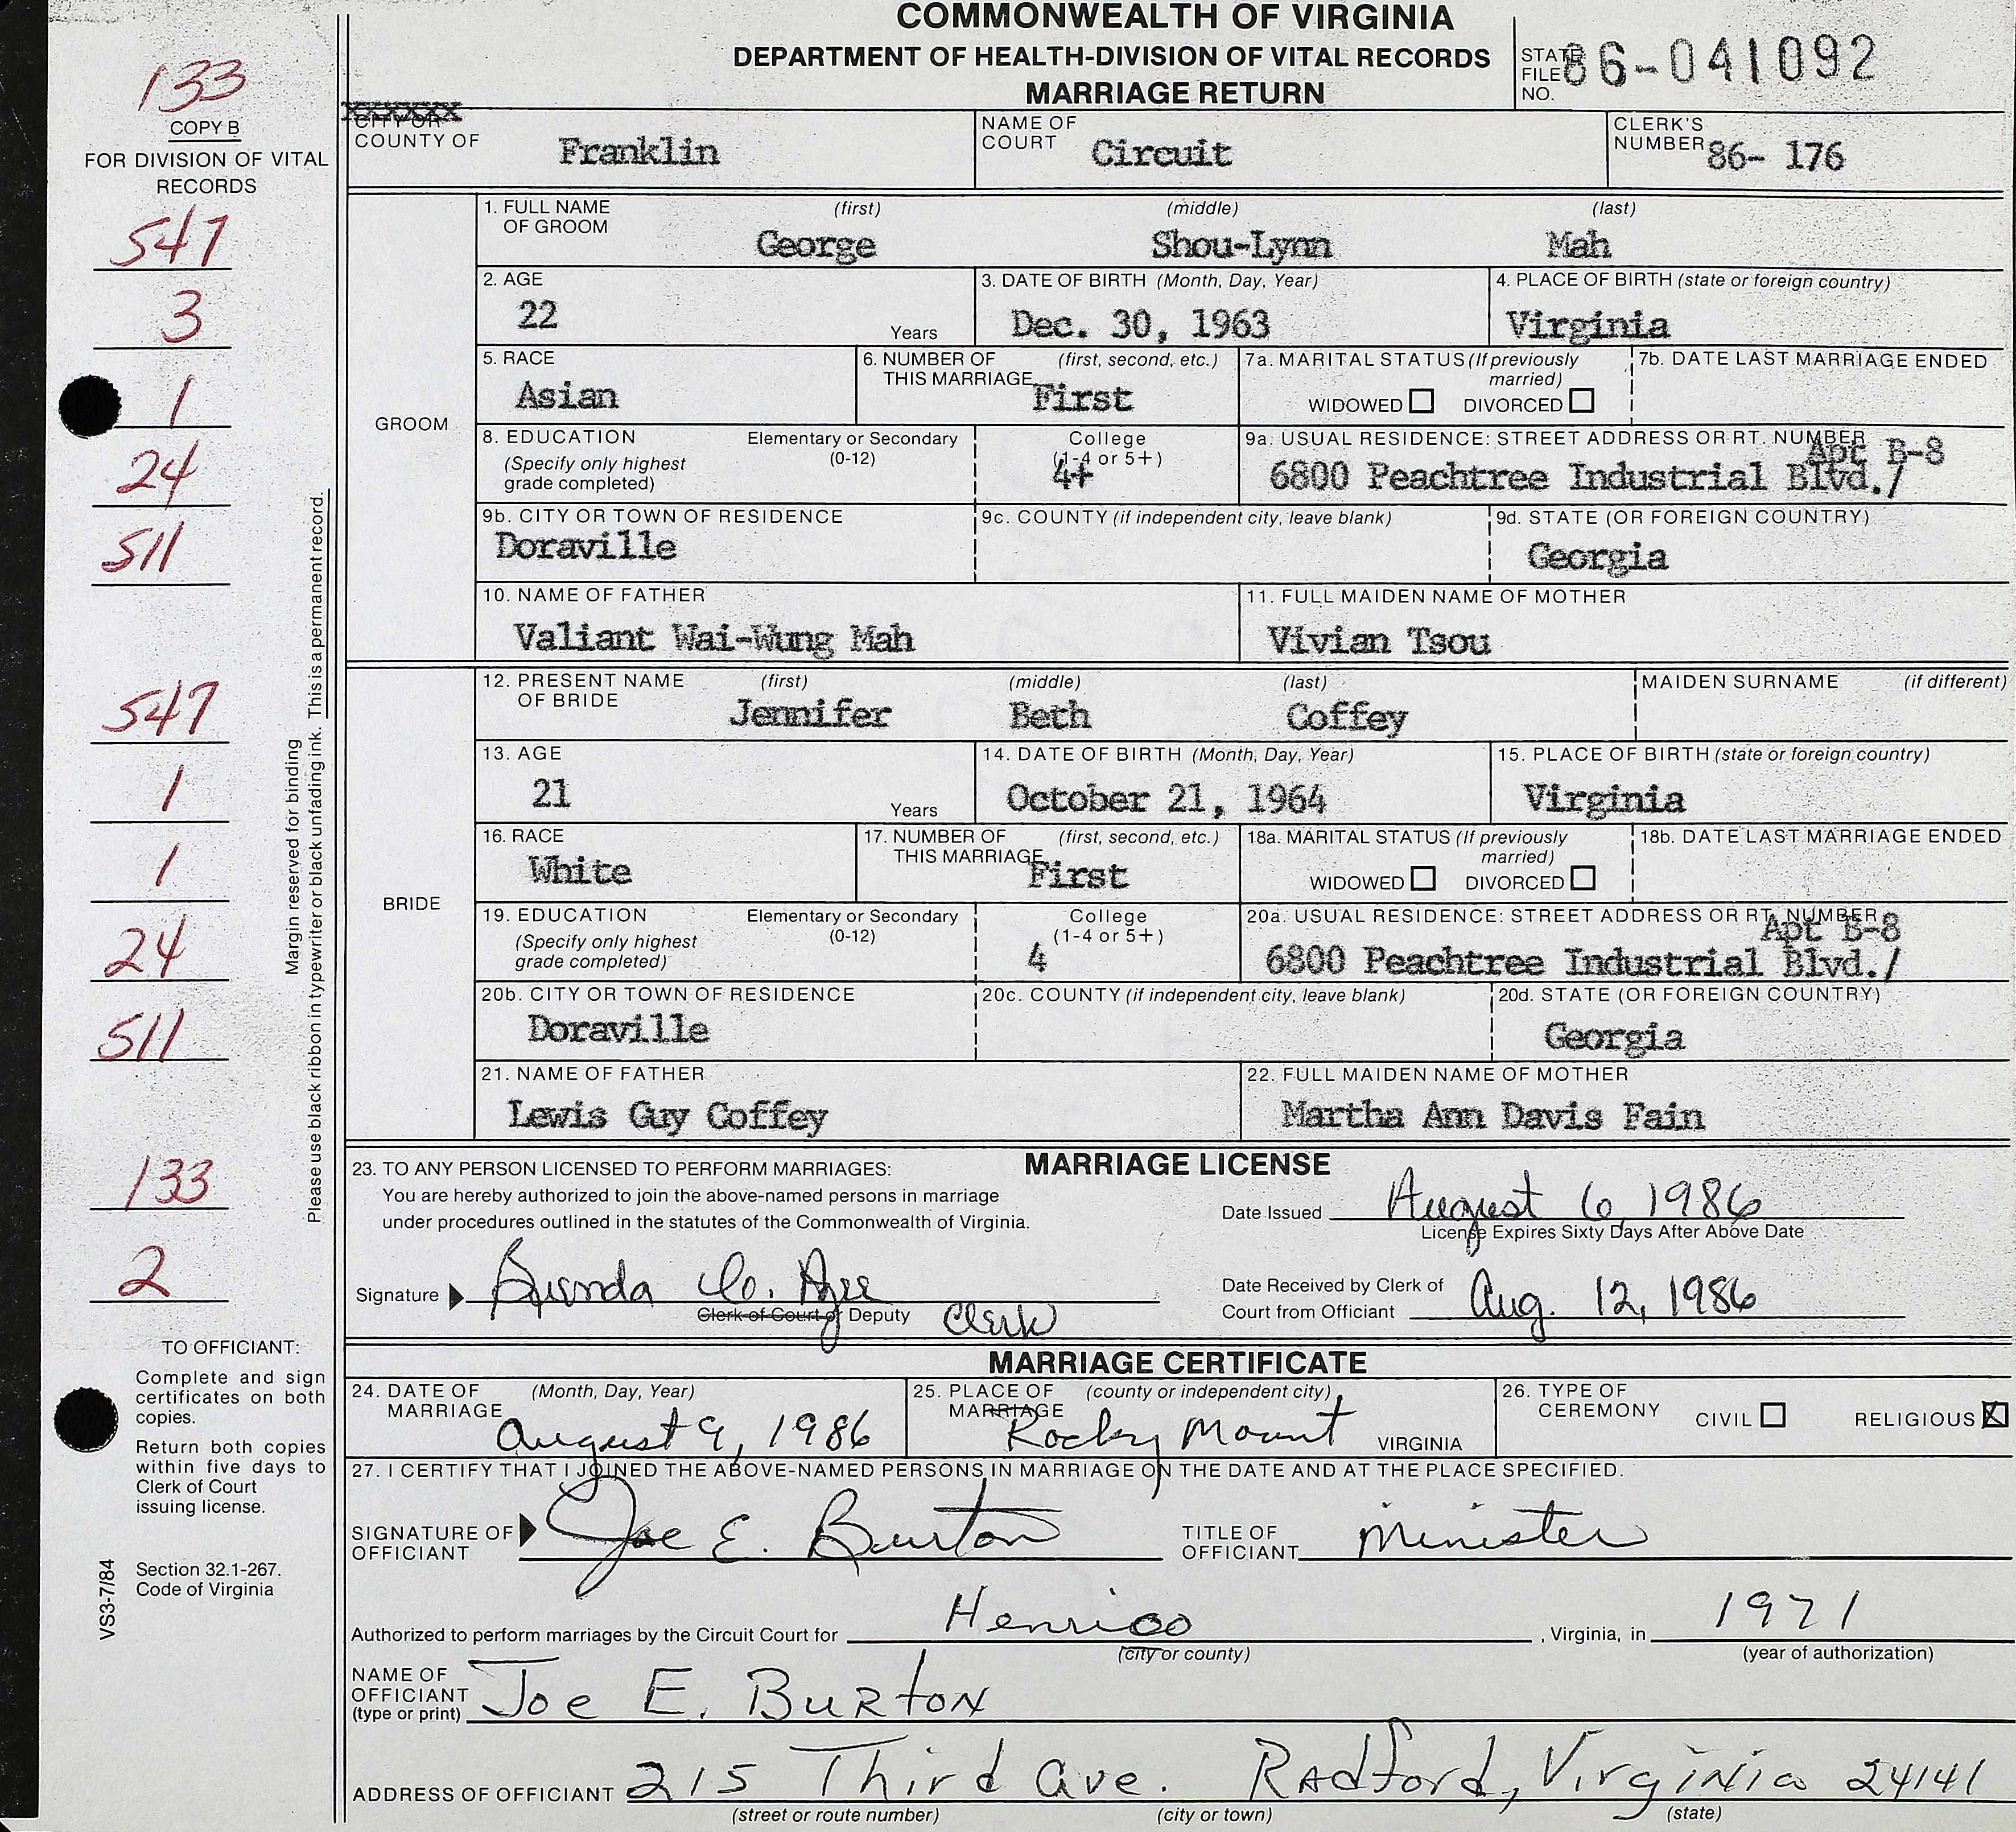 COMMONWEALTH OF VIRGINIA
DEPARTMENT OF HEALTH-DIVISION OF VITAL RECORDS
MARRIAGE RETURN
STATE FILE NO. 86-041092
133
COPY B
FOR DIVISION OF VITAL RECORDS
CITY OR COUNTY OF Franklin
NAME OF COURT Circuit
CLERK'S NUMBER 86- 176
547
3
1
24
511
547
1
1
24
511
133
2
Margin reserved for binding
Please use black ribbon in typewriter or black unfading ink. This is a permanent record.
GROOM
1. FULL NAME OF GROOM (first) George (middle) Shou-Lynn (last) Mah
2. AGE 22 Years
3. DATE OF BIRTH (Month, Day, Year) Dec. 30, 1963
4. PLACE OF BIRTH (state or foreign country) Virginia
5. RACE Asian
6. NUMBER OF THIS MARRIAGE (first, second, etc.) First
7a. MARITAL STATUS (If previously married) WIDOWED DIVORCED
7b. DATE LAST MARRIAGE ENDED
8. EDUCATION (Specify only highest grade completed) Elementary or Secondary (0-12) College (1-4 or 5+) 4+
9a. USUAL RESIDENCE: STREET ADDRESS OR RT. NUMBER 6800 Peachtree Industrial Blvd./ Apt B-8
9b. CITY OR TOWN OF RESIDENCE Doraville
9c. COUNTY (if independent city, leave blank)
9d. STATE (OR FOREIGN COUNTRY) Georgia
10. NAME OF FATHER Valiant Wai-Wung Mah
11. FULL MAIDEN NAME OF MOTHER Vivian Tsou
BRIDE
12. PRESENT NAME OF BRIDE (first) Jennifer (middle) Beth (last) Coffey
MAIDEN SURNAME (if different)
13. AGE 21 Years
14. DATE OF BIRTH (Month, Day, Year) October 21, 1964
15. PLACE OF BIRTH (state or foreign country) Virginia
16. RACE White
17. NUMBER OF THIS MARRIAGE (first, second, etc.) First
18a. MARITAL STATUS (If previously married) WIDOWED DIVORCED
18b. DATE LAST MARRIAGE ENDED
19. EDUCATION (Specify only highest grade completed) Elementary or Secondary (0-12) College (1-4 or 5+) 4
20a. USUAL RESIDENCE: STREET ADDRESS OR RT. NUMBER 6800 Peachtree Industrial Blvd./ Apt B-8
20b. CITY OR TOWN OF RESIDENCE Doraville
20c. COUNTY (if independent city, leave blank)
20d. STATE (OR FOREIGN COUNTRY) Georgia
21. NAME OF FATHER Lewis Guy Coffey
22. FULL MAIDEN NAME OF MOTHER Martha Ann Davis Fain
MARRIAGE LICENSE
23. TO ANY PERSON LICENSED TO PERFORM MARRIAGES:
You are hereby authorized to join the above-named persons in marriage
under procedures outlined in the statutes of the Commonwealth of Virginia.
Date Issued August 6, 1986
License Expires Sixty Days After Above Date
Signature
Clerk of Court or Deputy Clerk
Date Received by Clerk of Court from Officiant Aug. 12, 1986
MARRIAGE CERTIFICATE
24. DATE OF MARRIAGE (Month, Day, Year) August 9, 1986
25. PLACE OF MARRIAGE (county or independent city) Rocky Mount VIRGINIA
26. TYPE OF CEREMONY CIVIL RELIGIOUS X
27. I CERTIFY THAT I JOINED THE ABOVE-NAMED PERSONS IN MARRIAGE ON THE DATE AND AT THE PLACE SPECIFIED.
SIGNATURE OF OFFICIANT Joe E. Burton
TITLE OF OFFICIANT Minister
Authorized to perform marriages by the Circuit Court for Henrico, Virginia, in 1971
(city or county) (year of authorization)
NAME OF OFFICIANT (type or print) Joe E. Burton
ADDRESS OF OFFICIANT 215 Third Ave. Radford, Virginia 24141
(street or route number) (city or town) (state)
TO OFFICIANT:
Complete and sign
certificates on both
copies.
Return both copies
within five days to
Clerk of Court
issuing license.
Section 32.1-267.
Code of Virginia
VS3-7/84